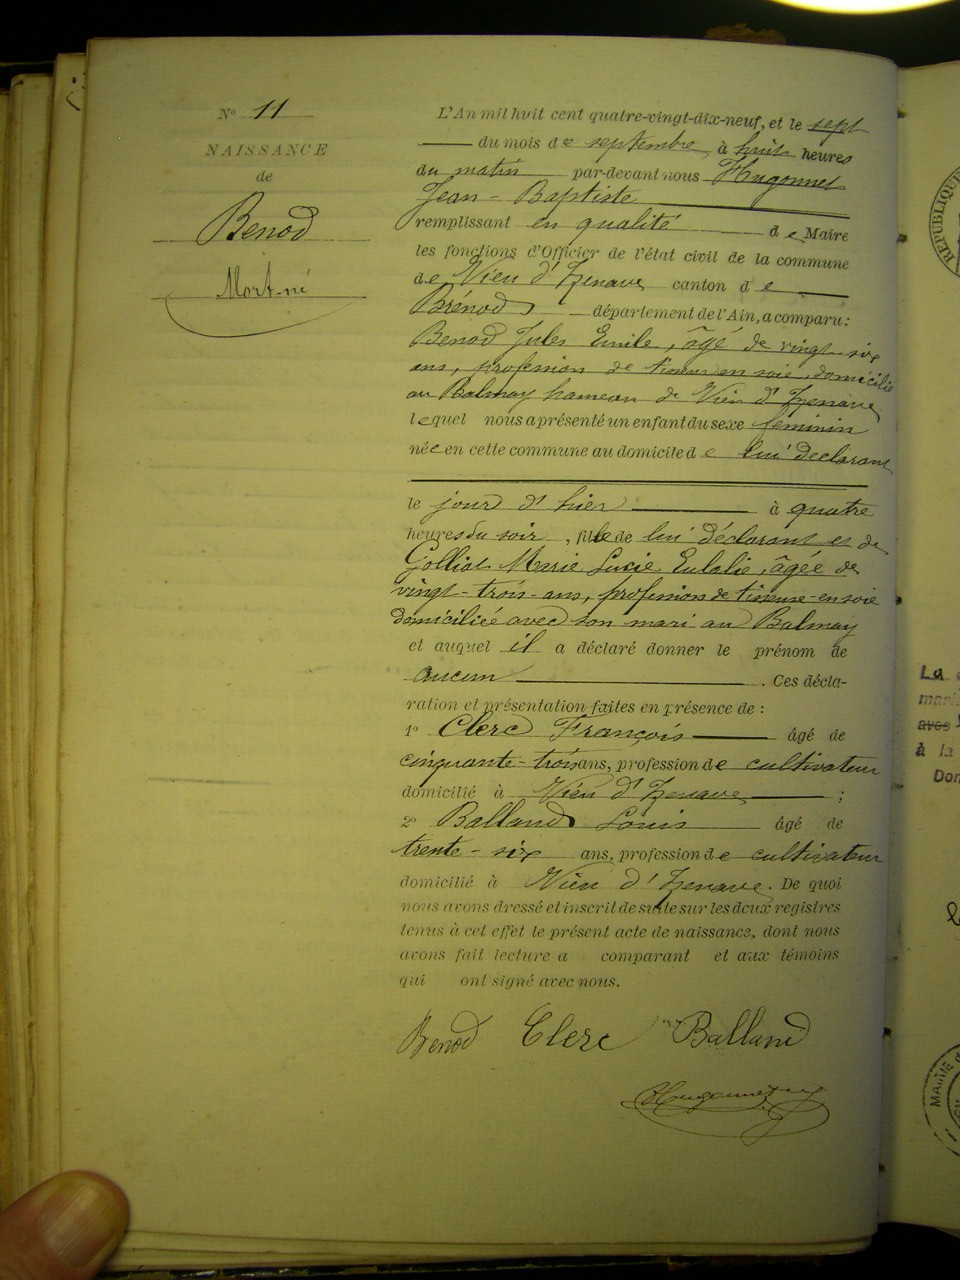 N° 11
NAISSANCE
de
Benod
Mort-né
L'An mil huit cent quatre-vingt-dix-neuf, et le sept
du mois de septembre, à huit heures
du matin par-devant nous Hugonnet
Jean-Baptiste
remplissant en qualité de Maire
les fonctions d'Officier de l'état civil de la commune
de Vieu d'Izenave canton de
Brénod département de l'Ain, a comparu:
Benod Jules Emile, âgé de vingt-six
ans, profession de tisseur en soie, domicilié
au Balmay hameau de Vieu d'Izenave
lequel nous a présenté un enfant du sexe féminin
née en cette commune au domicile de lui déclarant
le jour d'hier à quatre
heures du soir, fille de lui déclarant et de
Golliat Marie Lucie Eulalie, âgée de
vingt-trois-ans, profession de tisseuse-en-soie
domiciliée avec son mari au Balmay
et auquel il a déclaré donner le prénom de
aucun. Ces décla-
ration et présentation faites en présence de:
1° Clerc François âgé de
cinquante-trois ans, profession de cultivateur
domicilié à Vieu d'Izenave;
2° Balland Louis âgé de
trente-six ans, profession de cultivateur
domicilié à Vieu d'Izenave. De quoi
nous avons dressé et inscrit de suite sur les deux registres
tenus à cet effet le présent acte de naissance, dont nous
avons fait lecture a comparant et aux témoins
qui ont signé avec nous.
Benod Clerc Balland
Hugonnet
RÉPUBLIQUE
La
mari
avec
à la
Don
MAIRIE